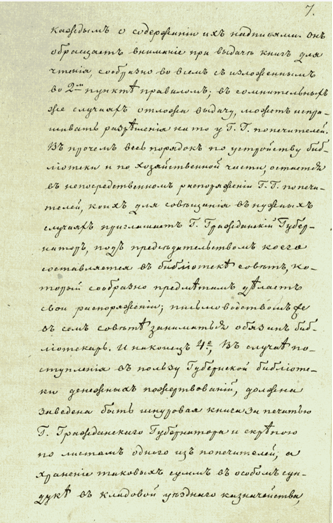 7.
каждымъ о содержаніи ихъ надписями. Онъ
обращаетъ вниманіе при выдачѣ книгъ для
чтенія, сообразно во всемъ съ изложеннымъ
во 2мъ пунктѣ правиломъ, въ сомнительныхъ
же случаяхъ отложа выдачу, можетъ испра-
шивать разрѣшенія на то у Г.Г. попечителей.
Въ прочемъ весь порядокъ по устройству биб-
ліотеки и по хозяйственной части, остается
въ непосредственномъ распоряженіи Г.Г. попечи-
телей, коихъ для совѣщанія въ нужныхъ
случаяхъ приглашаетъ Г. Гражданскій Губер-
наторъ, подъ предсѣдательствомъ коего
составляется въ библіотекѣ совѣтъ, ко-
торый сообразно предметамъ дѣлаетъ
свои распоряженія; письмоводствомъ же
въ семъ совѣтѣ заниматься обязанъ биб-
ліотекарь. И наконецъ 4е, Въ случаѣ по-
ступленія въ пользу Губернской библіоте-
ки денежныхъ пожертвованій, должна
заведена быть шнуровая книга за печатью
Г. Гражданскаго Губернатора и скрѣпою
по листамъ одного изъ попечителей, а
храненіе таковыхъ суммъ въ особомъ сун-
дукѣ въ кладовой уѣзднаго казначейства,